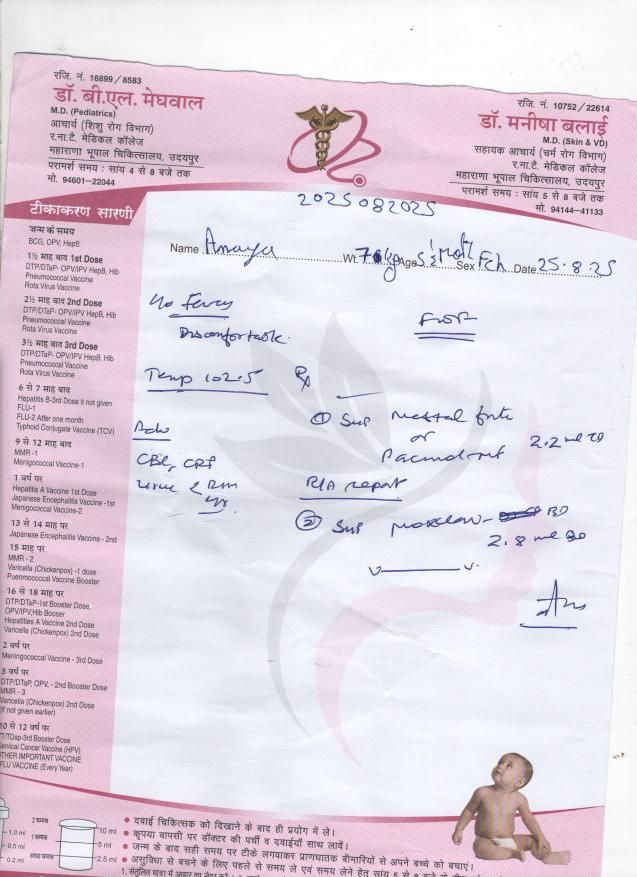 रजि. नं. 16899/8583
डॉ. बी.एल. मेघवाल
M.D. (Pediatrics)
आचार्य (शिशु रोग विभाग)
र.ना.टै. मेडिकल कॉलेज
महाराणा भूपाल चिकित्सालय, उदयपुर
परामर्श समय : सांय 4 से 8 बजे तक
मो. 94601-22044
रजि. नं. 10752/22614
डॉ. मनीषा बलाई
M.D. (Skin & VD)
सहायक आचार्य (चर्म रोग विभाग)
र.ना.टै. मेडिकल कॉलेज
महाराणा भूपाल चिकित्सालय, उदयपुर
परामर्श समय : सांय 5 से 8 बजे तक
मो. 94144-41133
2025082025
Name Anaya Wt. kg Age Sex Fch Date 25.8.25
टीकाकरण सारणी
जन्म के समय
BCG, OPV, HepB
1½ माह बाद 1st Dose
DTP/DTaP- OPV/IPV HepB, Hib
Pneumococcal Vaccine
Rota Virus Vaccine
2½ माह बाद 2nd Dose
DTP/DTaP- OPV/IPV HepB, Hib
Pneumococcal Vaccine
Rota Virus Vaccine
3½ माह बाद 3rd Dose
DTP/DTaP- OPV/IPV HepB, Hib
Pneumococcal Vaccine
Rota Virus Vaccine
6 से 7 माह बाद
Hepatitis B-3rd Dose it not given
FLU-1
FLU-2 Atfer one month
Typhoid Conjugate Vaccine (TCV)
9 से 12 माह बाद
MMR -1
Menigococcal Vaccine-1
1 वर्ष पर
Hepatitis A Vaccine 1st Dose
Japanese Encephalitis Vaccine -1st
Menigococcal Vaccine-2
13 से 14 माह पर
Japanese Encephalitis Vaccine - 2nd
15 माह पर
MMR - 2
Varicella (Chickenpox) -1 dose
Puenmococcal Vaccine Booster
16 से 18 माह पर
DTP/DTaP-1st Booster Dose,
OPV/IPV,Hib Booser
Hepatities A Vaccine 2nd Dose
Varicella (Chickenpox) 2nd Dose
2 वर्ष पर
Meningococcal Vaccine - 3rd Dose
5 वर्ष पर
DTP/DTaP, OPV, - 2nd Booster Dose
MMR - 3
Varicella (Chickenpox) 2nd Dose
(If not given earlier)
10 से 12 वर्ष पर
TT/TDap-3rd Booster Dose
Cervical Cancer Vaccine (HPV)
OTHER IMPORTANT VACCINE
FLU VACCINE (Every Year)
Fever
Discomfortable.
Temp 102.5
Adv
CBC, CRP
Urine
Rx
① Syp forte
or
2.2 ml
R/A report
② Syp Moxclav- BD
2.8 ml BD
1.0 ml
0.5 ml
0.2 ml
10 ml
5 ml
2.5 ml
दवाई चिकित्सक को दिखाने के बाद ही प्रयोग में ले।
कृपया वापसी पर डॉक्टर की पर्ची व दवाईयाँ साथ लावें।
जन्म के बाद सही समय पर टीके लगवाकर प्राणघातक बीमारियों से अपने बच्चे को बचाएं।
असुविधा से बचने के लिए पहले से समय ले एवं समय लेने हेतु सांय 5 से 8 बजे